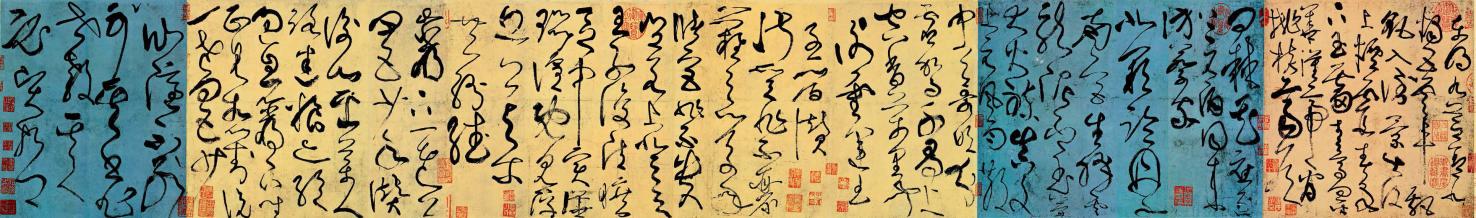 東明九芝蓋北
燭五雲車飄
飖入倒景出沒
上煙霞春泉
下玉霤青鳥向金
華漢帝看
桃核齊侯
問棘花應逐
上元酒同來
訪蔡家
北闕臨丹
水南宮生絳雲
龍泥印玉策
大火煉真文
上元風雨散
中天歌吹分
靈駕千尋上
空香萬里聞
謝靈運王
子晉贊
淑質非不麗
難以之百年
儲宮非不貴
豈若上登天
王子復清曠
區中實嘩
囂喧既見浮
丘公與爾
共紛繙
岩下一老公
四五少年贊
衡山採藥人
路迷糧亦絕
過息岩下坐
正見相對說
一老四五少
仙隱不可別
其書非世教
其人必賢哲